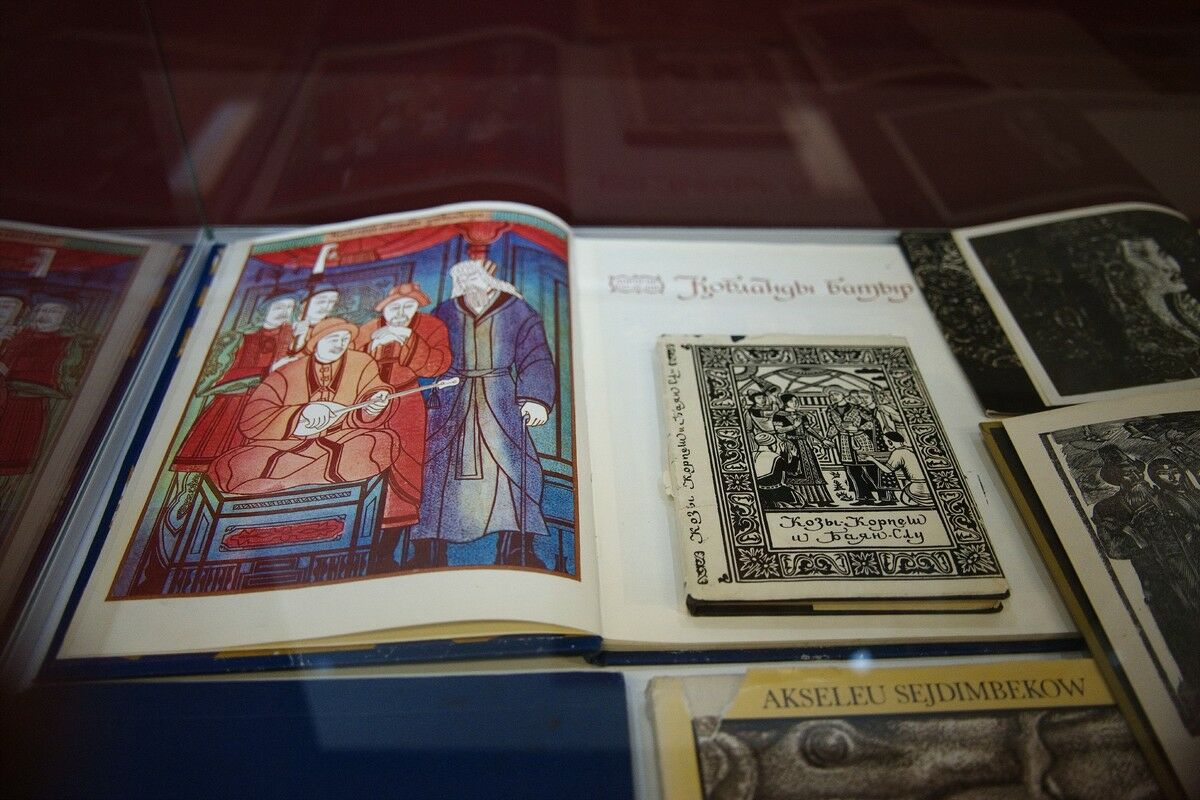 Қобланды батыр
Козы Корпеш и Баян Слу
Козы-Корпеш
и Баян-Слу
AKSELEU SEJDIMBEKOW